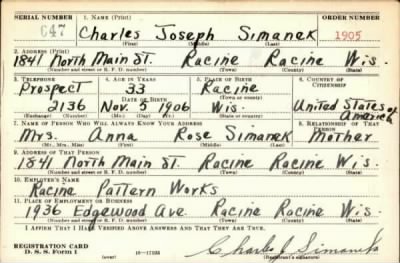 SERIAL NUMBER 1. NAME (Print) ORDER NUMBER
647 Charles Joseph Simanek 1905
(First) (Middle) (Last)
2. ADDRESS (Print)
1841 North Main St. Racine Racine Wis.
(Number and street or R. F. D. number) (Town) (County) (State)
3. TELEPHONE 4. AGE IN YEARS 5. PLACE OF BIRTH 6. COUNTRY OF CITIZENSHIP
Prospect 33 Racine
DATE OF BIRTH (Town or county)
2136 Nov. 5 1906 Wis. United States of America
(Exchange) (Number) (Mo.) (Day) (Yr.) (State or country)
7. NAME OF PERSON WHO WILL ALWAYS KNOW YOUR ADDRESS 8. RELATIONSHIP OF THAT PERSON
Mrs. Anna Rose Simanek Mother
(Mr., Mrs., Miss) (First) (Middle) (Last)
9. ADDRESS OF THAT PERSON
1841 North Main St. Racine Racine Wis.
(Number and street or R. F. D. number) (Town) (County) (State)
10. EMPLOYER'S NAME
Racine Pattern Works
11. PLACE OF EMPLOYMENT OR BUSINESS
1936 Edgewood Ave. Racine Racine Wis.
(Number and street or R. F. D. number) (Town) (County) (State)
I AFFIRM THAT I HAVE VERIFIED ABOVE ANSWERS AND THAT THEY ARE TRUE.
REGISTRATION CARD
D. S. S. Form 1 (over) Charles J Simanek
(Registrant's signature)